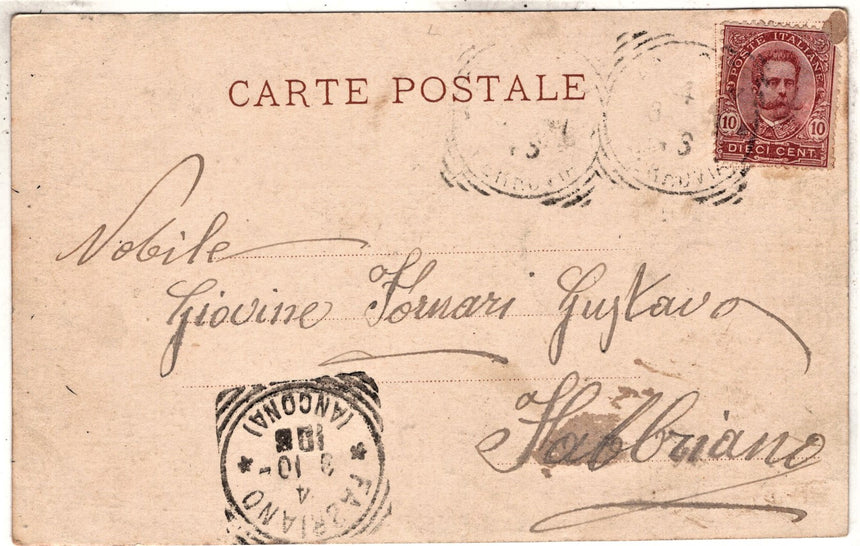 CARTE POSTALE
POSTE ITALIANE
10 10
DIECI CENT.
Nobile
Giovine Fornari Gustavo
Fabbriano
FABRIANO
(ANCONA)
4
10